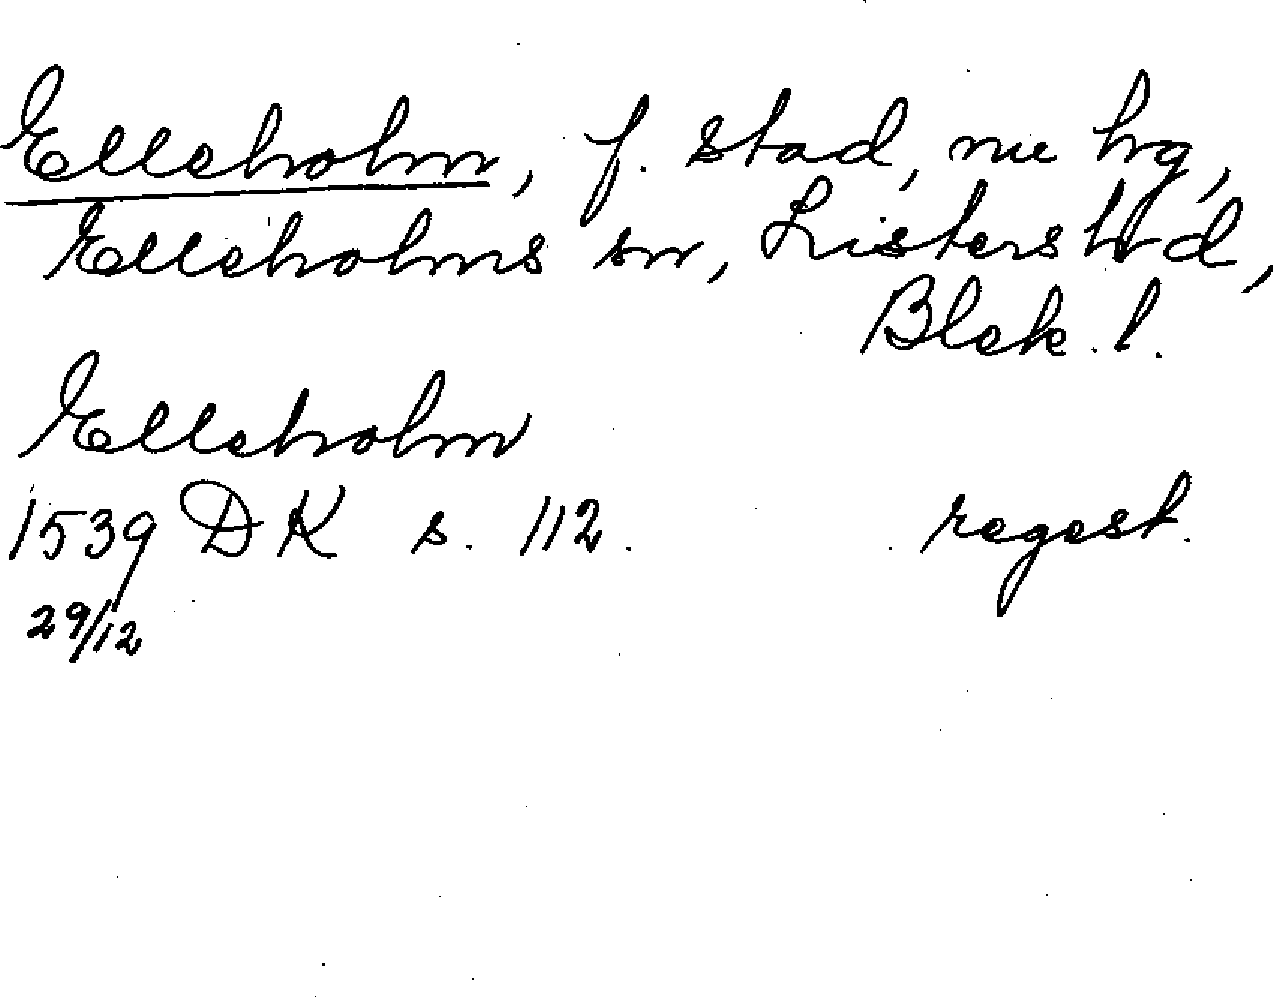 Elleholm, f. stad, nu hg,
Elleholms sn, Listers hd,
Blek. l.
Elleholm
1539 DK s. 112. regest.
29/12